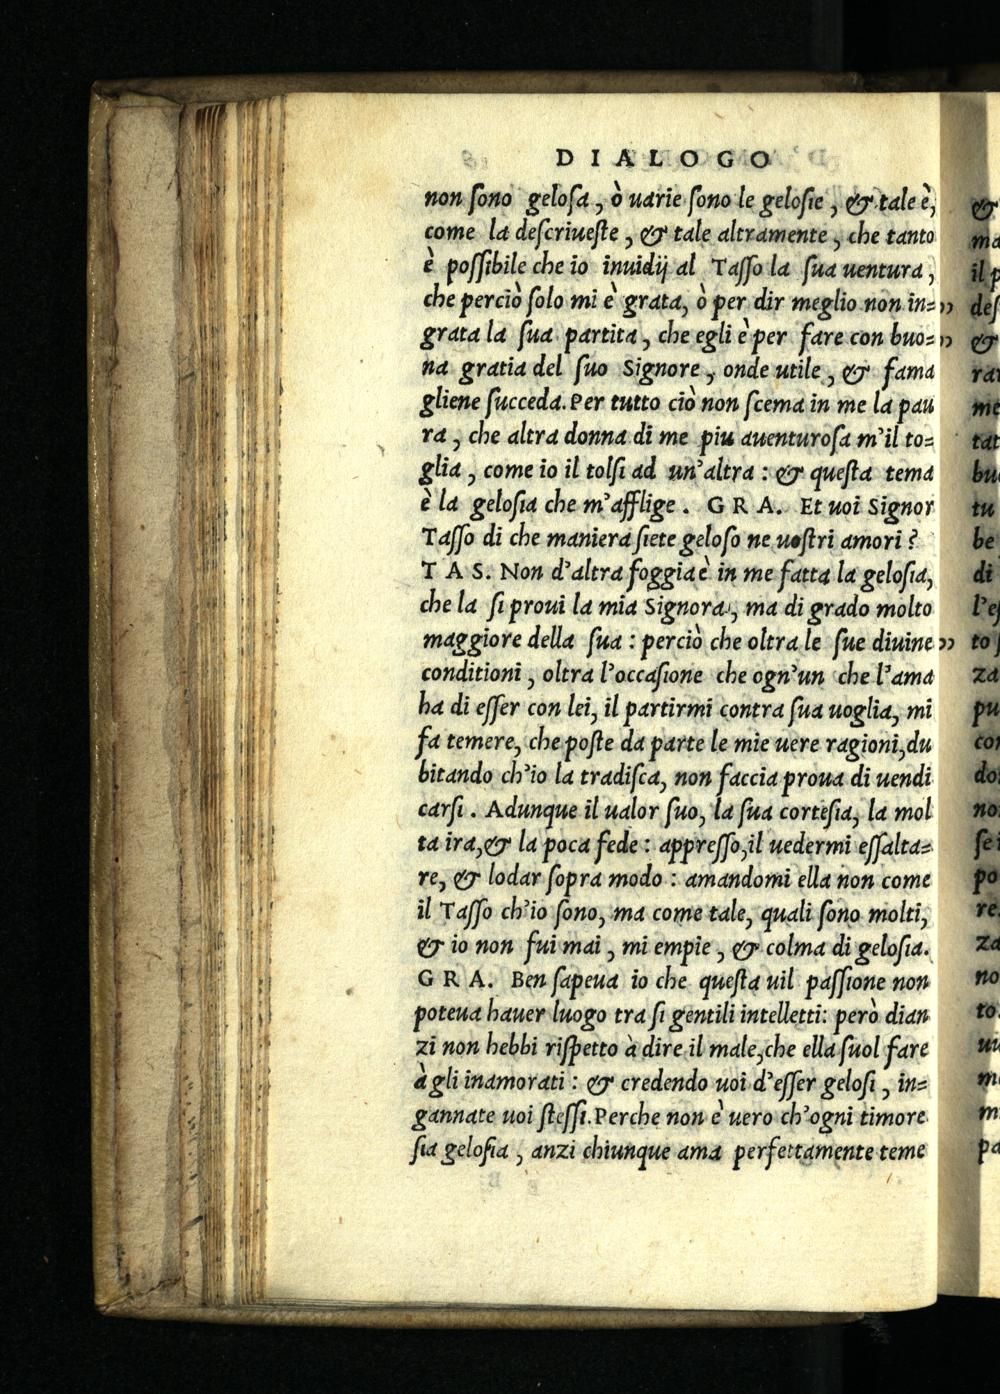 DIALOGO
non ſono geloſa, ò uarie ſono le geloſie, & tale è,
come la deſcriueſte, & tale altramente, che tanto
è poſſibile che io inuidij al Taſſo la ſua uentura,
che perciò ſolo mi è grata, ò per dir meglio non in=
grata la ſua partita, che egli è per fare con buo=
na gratia del ſuo Signore, onde utile, & fama
gliene ſucceda. Per tutto ciò non ſcema in me la pau
ra, che altra donna di me piu auenturoſa m'il to=
glia, come io il tolſi ad un'altra: & queſta tema
è la geloſia che m'afflige. GRA. Et uoi Signor
Taſſo di che maniera ſiete geloſo ne uoſtri amori?
TAS. Non d'altra foggia è in me fatta la geloſia,
che la ſi proui la mia Signora, ma di grado molto
maggiore della ſua: perciò che oltra le ſue diuine
conditioni, oltra l'occaſione che ogn'un che l'ama
ha di eſſer con lei, il partirmi contra ſua uoglia, mi
fa temere, che poſte da parte le mie uere ragioni, du
bitando ch'io la tradiſca, non faccia proua di uendi
carſi. Adunque il ualor ſuo, la ſua corteſia, la mol
ta ira, & la poca fede: appreſſo, il uedermi eſſalta=
re, & lodar ſopra modo: amandomi ella non come
il Taſſo ch'io ſono, ma come tale, quali ſono molti,
& io non fui mai, mi empie, & colma di geloſia.
GRA. Ben ſapeua io che queſta uil paſſione non
poteua hauer luogo tra ſi gentili intelletti: però dian
zi non hebbi riſpetto à dire il male, che ella ſuol fare
à gli inamorati: & credendo uoi d'eſſer geloſi, in=
gannate uoi ſteſſi. Perche non è uero ch'ogni timore
ſia geloſia, anzi chiunque ama perfettamente teme